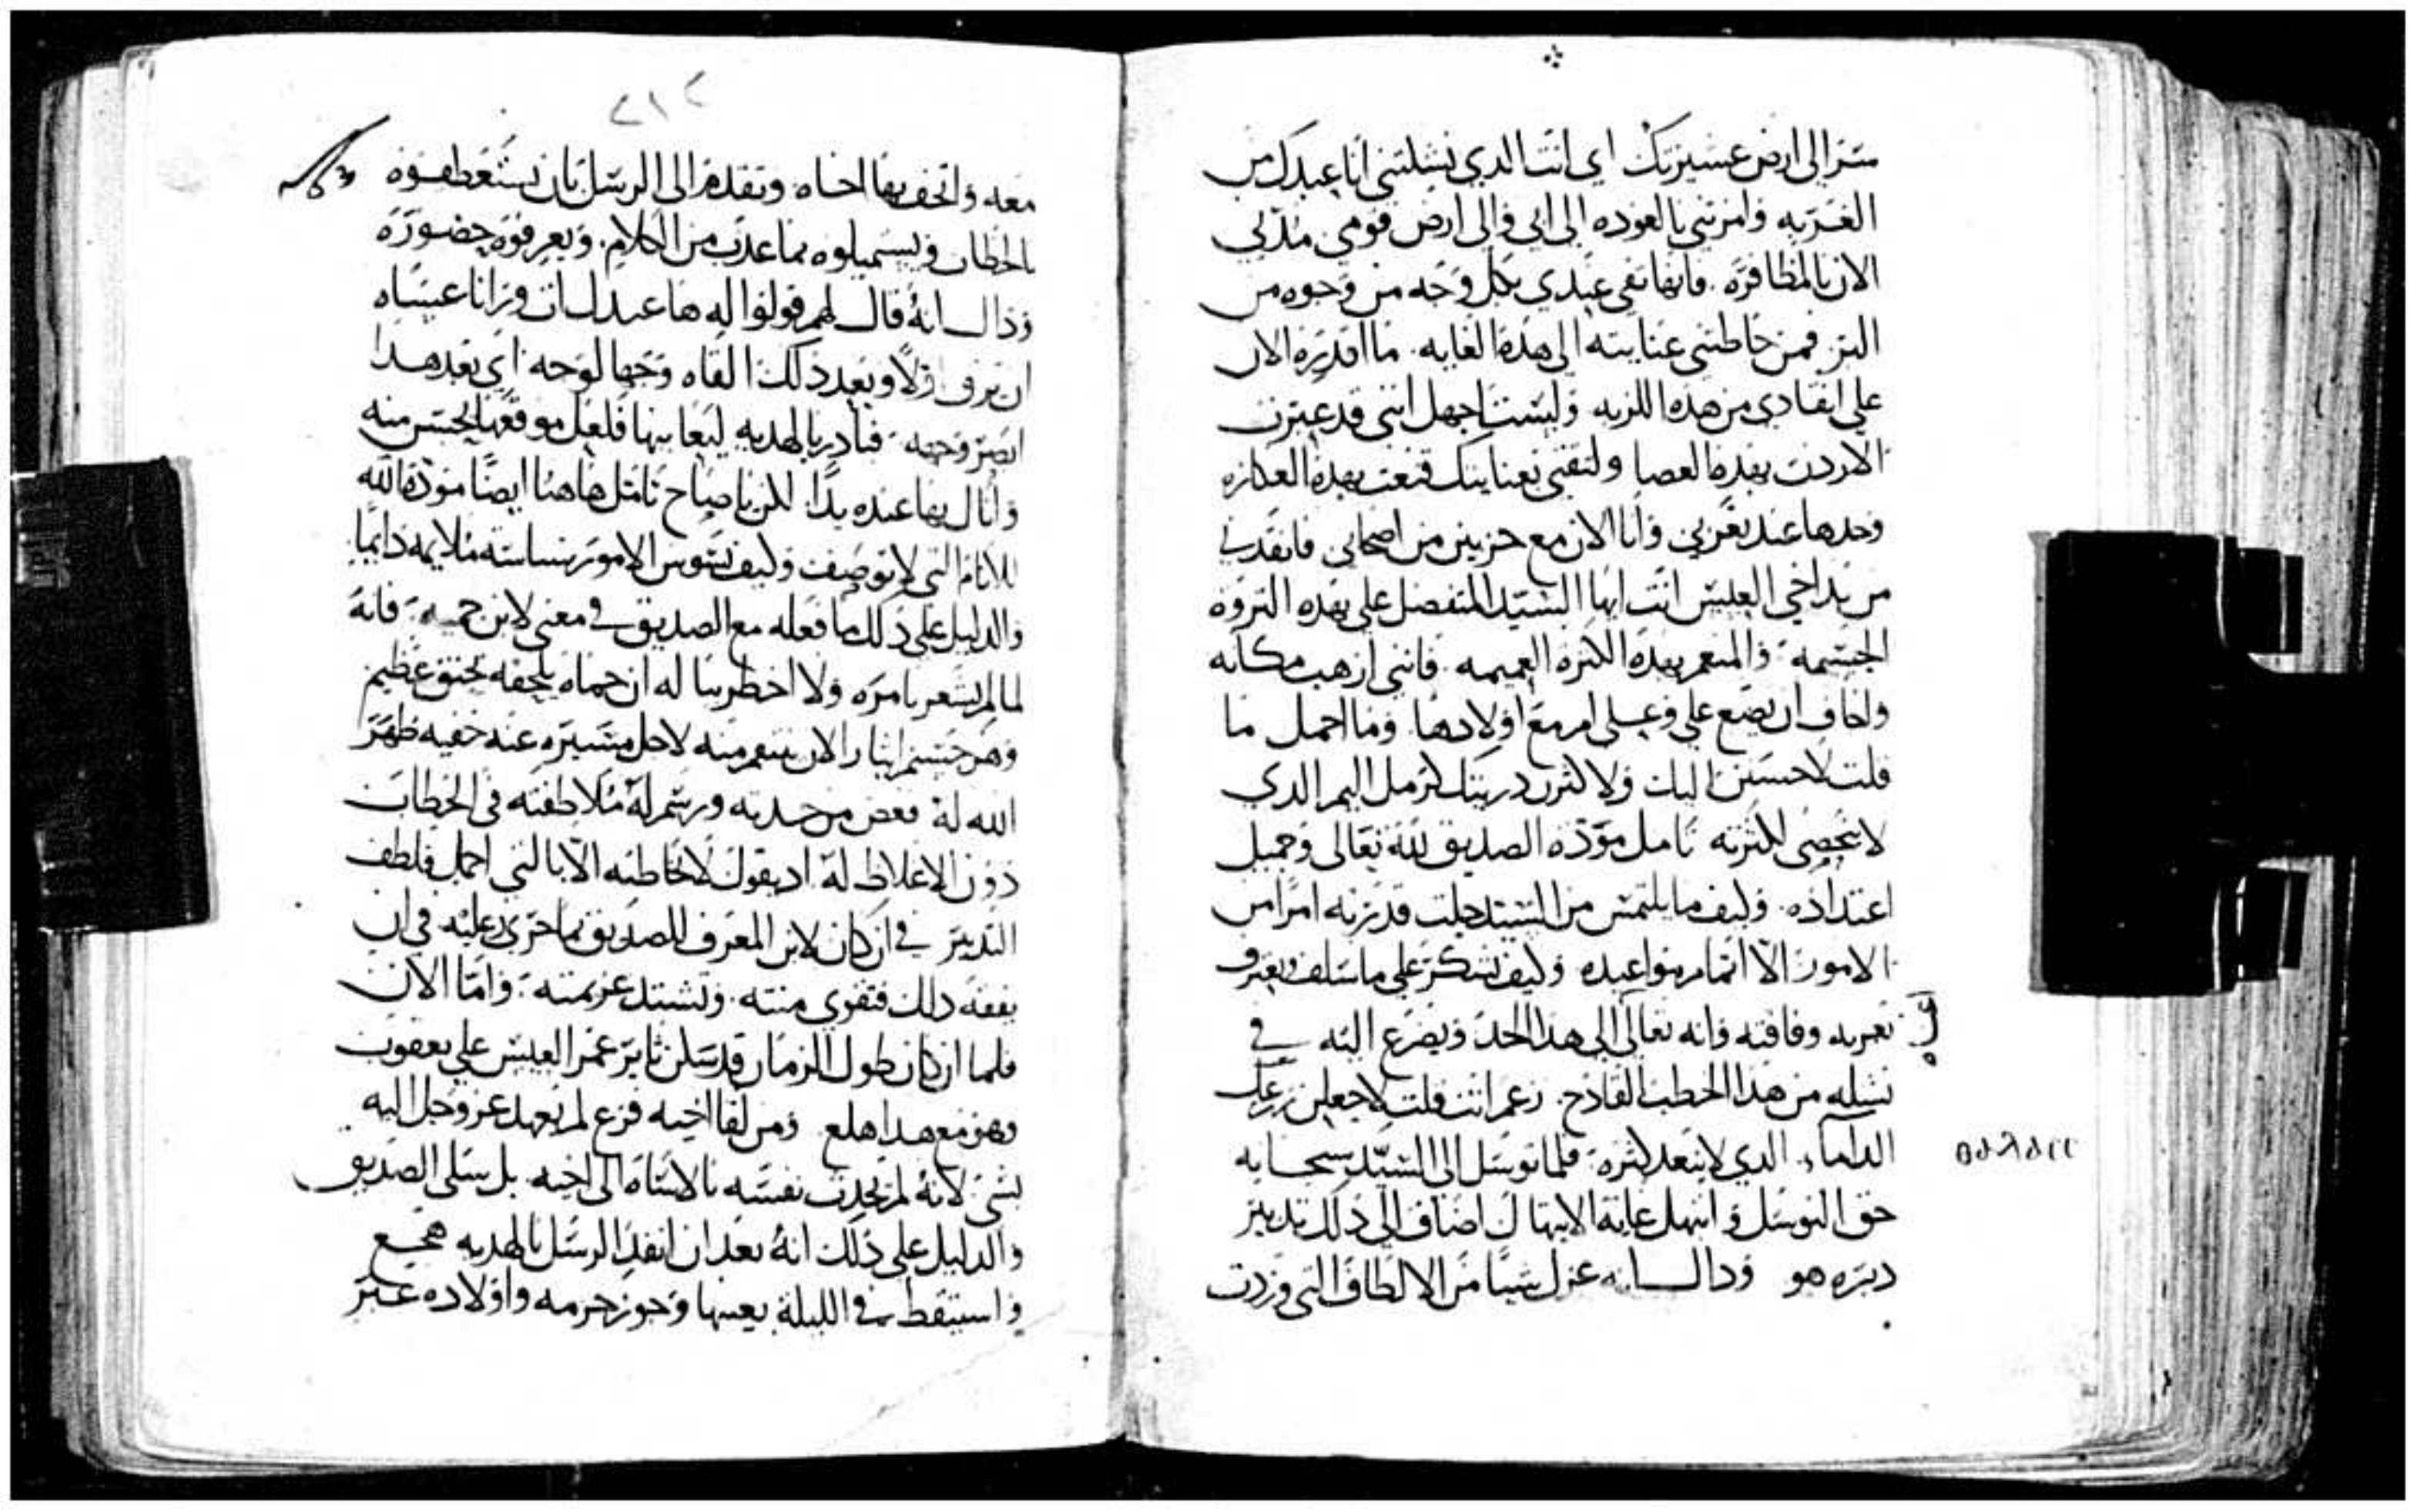 سر الى ارض عشيرتك اي انت الدي نشلتني انا عبدك من
الغربه وامرتني بالعوده الى ابي والى ارض قومي مدلي
الان بالمظافره فانها تفي عبدي بكل وجه من وجوه من
البر فمن حاطتني عنايته الى هذه الغايه ما اقدره الان
على انقادي من هذه اللزبه ولست اجهل انني قد عبرت
الاردن بهذه العصا ولثقتي بعنايتك قنعت بهذه العكازه
وحدها عند تغربي وانا الان مع حزبين من اصحابي فانقدني
من يد اخي العيس انت ايها السيد المتفضل علي بهذه الثروه
الجسيمه والمنعم بهذه الكثره العميمه فانني ارهب مكانه
واخاف ان يضع علي وعلى ام مع اولادها وما اجمل ما
قلت لاحسنن اليك ولاكثرن دريتك كرمل اليم الدي
لا يحصى لكثرته تامل موده الصديق لله تعالى وجميل
اعتداده وكيف ما يلتمس من السيد جلت قدرته امرا من
الامور الا اتمام مواعيده وكيف يشكر على ما سلف ويعترف
بعريه وفاقته وانه تعالى الى هذا الحد ويضرع اليه في
نشله من هذا الخطب الفادح زعم انت قلت لاجعلن زرعك
الداماء الدي لا يعد لكثره فلما توسل الى السيد سبحانه
حق التوسل وابتهل غاية الابتهال اضاف الى ذلك تدبير
دبره هو وذاك انه عزل شيا من الالطاف التي وردت
٥٥٨٨٥٢٢
٢١٢
معه واتحف بها اخاه وتقدم الى الرسل بان يستعطفوه
بالخطاب ويستميلوه بما عذب من الكلام ويعرفوه حضوره
وذاك انه قال لهم قولوا له ها عبدك ات ورانا عيساه
ان يرف اولا وبعد ذلك القاه وجها لوجه اي بعد هذا
ابصر وجهه فبادر بالهديه ليعاينها فلعل موقعها يحسن منه
وانال بها عنده يدا لكن يا صاح تامل هاهنا ايضا مودة الله
للانام التي لا توصف وكيف يسوس الامور بسياسته ملايمه دايما
والدليل على ذلك ما فعله مع الصديق في معنى لابن حميه فانه
لما لم يشعر بامره ولا اخطر بباله ان حماه يلحقه بحنق عظيم
وهو حينئم ايثارا لان ينتقم منه لاجل مسيره عنه خفيه ظهر
الله له فغض من حدته ورسم له ملاطفته في الخطاب
دون الاغلاظ له اد يقول لا تخاطبه الا بالتي اجمل فلطف
التدبير في ان كان لابن المعرف للصديق بما جرى عليه في ان
يفقه ذلك فتقوى منته وتشتد عزيمته واما الان
فلما ان كان طول الزمان قد سكن ثاير غمر العيس على يعقوب
وهو مع هدا هلع ومن لقا اخيه فزع لم يعهد عز وجل اليه
بشئ لانه لم يحدث نفسه بالاساه الى اخيه بل سلى الصديق
والدليل على ذلك انه بعد ان انفذ الرسل بالهديه هجع
واستيقظ في الليلة بعينها وحوز حرمه واولاده عبر